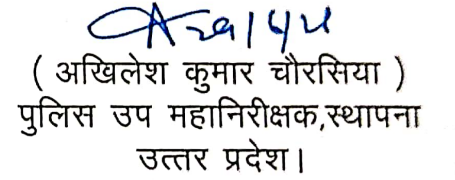 ( अखिलेश कुमार चौरसिया )
पुलिस उप महानिरीक्षक,स्थापना
उत्तर प्रदेश।